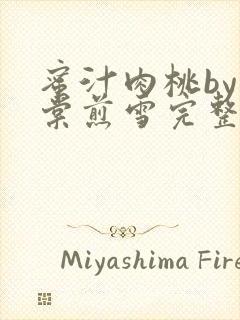 蜜汁肉桃by
棠煎雪完整
Miyashima Fire